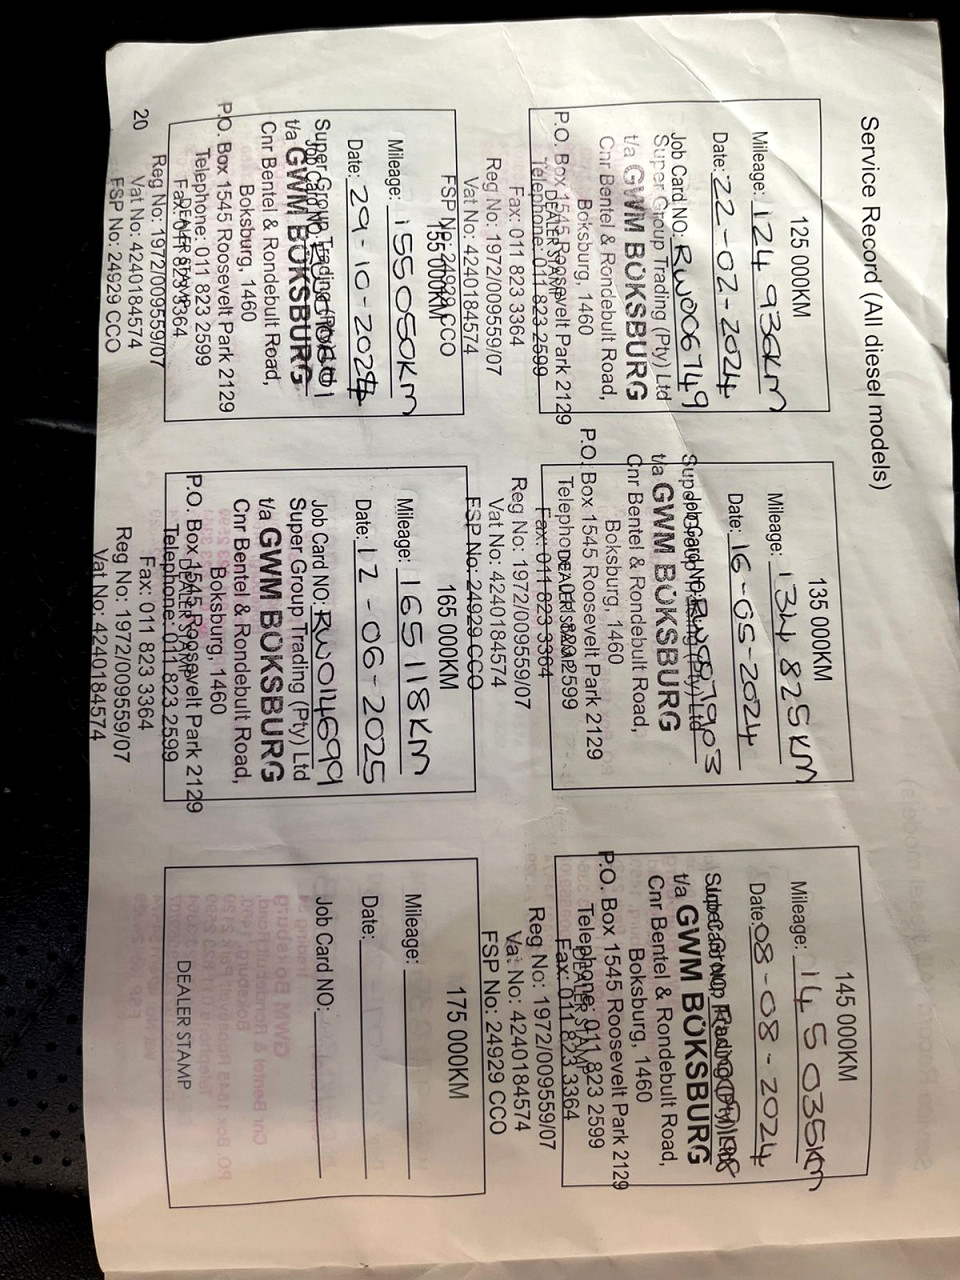 Service Record (All diesel models)
125 000KM
Mileage: 124 936km
Date: 22-02-2024
Job Card NO: RW006749
Super Group Trading (Pty) Ltd
t/a GWM BOKSBURG
Cnr Bentel & Rondebult Road,
Boksburg, 1460
P.O. Box 1545 Roosevelt Park 2129
DEALER STAMP
Telephone: 011 823 2599
Fax: 011 823 3364
Reg No: 1972/009559/07
Vat No: 4240184574
FSP No: 24929 CCO
135 000KM
Mileage: 134 825KM
Date: 16-05-2024
Job Card NO:
Super Group Trading (Pty) Ltd
t/a GWM BOKSBURG
Cnr Bentel & Rondebult Road,
Boksburg, 1460
P.O. Box 1545 Roosevelt Park 2129
DEALER STAMP
Telephone: 011 823 2599
Fax: 011 823 3364
Reg No: 1972/009559/07
Vat No: 4240184574
FSP No: 24929 CCO
145 000KM
Mileage: 145 035km
Date: 08-08-2024
Job Card NO:
Super Group Trading (Pty) Ltd
t/a GWM BOKSBURG
Cnr Bentel & Rondebult Road,
Boksburg, 1460
P.O. Box 1545 Roosevelt Park 2129
DEALER STAMP
Telephone: 011 823 2599
Fax: 011 823 3364
Reg No: 1972/009559/07
Vat No: 4240184574
FSP No: 24929 CCO
155 000KM
Mileage: 155050KM
Date: 29-10-2024
Job Card NO:
Super Group Trading (Pty) Ltd
t/a GWM BOKSBURG
Cnr Bentel & Rondebult Road,
Boksburg, 1460
P.O. Box 1545 Roosevelt Park 2129
Telephone: 011 823 2599
DEALER STAMP
Fax: 011 823 3364
Reg No: 1972/009559/07
Vat No: 4240184574
FSP No: 24929 CCO
165 000KM
Mileage: 165118KM
Date: 12-06-2025
Job Card NO: RW014699
Super Group Trading (Pty) Ltd
t/a GWM BOKSBURG
Cnr Bentel & Rondebult Road,
Boksburg, 1460
P.O. Box 1545 Roosevelt Park 2129
DEALER STAMP
Telephone: 011 823 2599
Fax: 011 823 3364
Reg No: 1972/009559/07
Vat No: 4240184574
175 000KM
Mileage:
Date:
Job Card NO:
DEALER STAMP
20